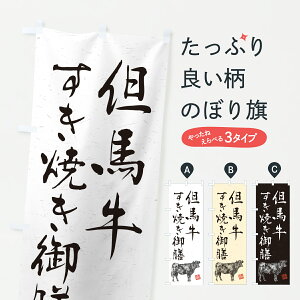 但馬牛
すき焼き御膳
たっぷり
良い柄
のぼり旗
やったね
えらべる3タイプ
A
B
C
但馬牛
すき焼き御膳
但馬牛
すき焼き御膳
但馬牛
すき焼き御膳